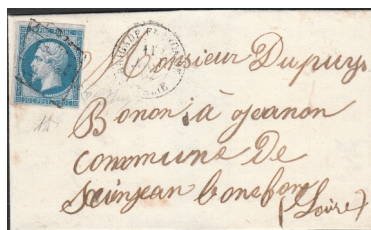 Monsieur Dupuy
Bonon à Jeanon
Commune de
Seinjean bonefon
(Loire)